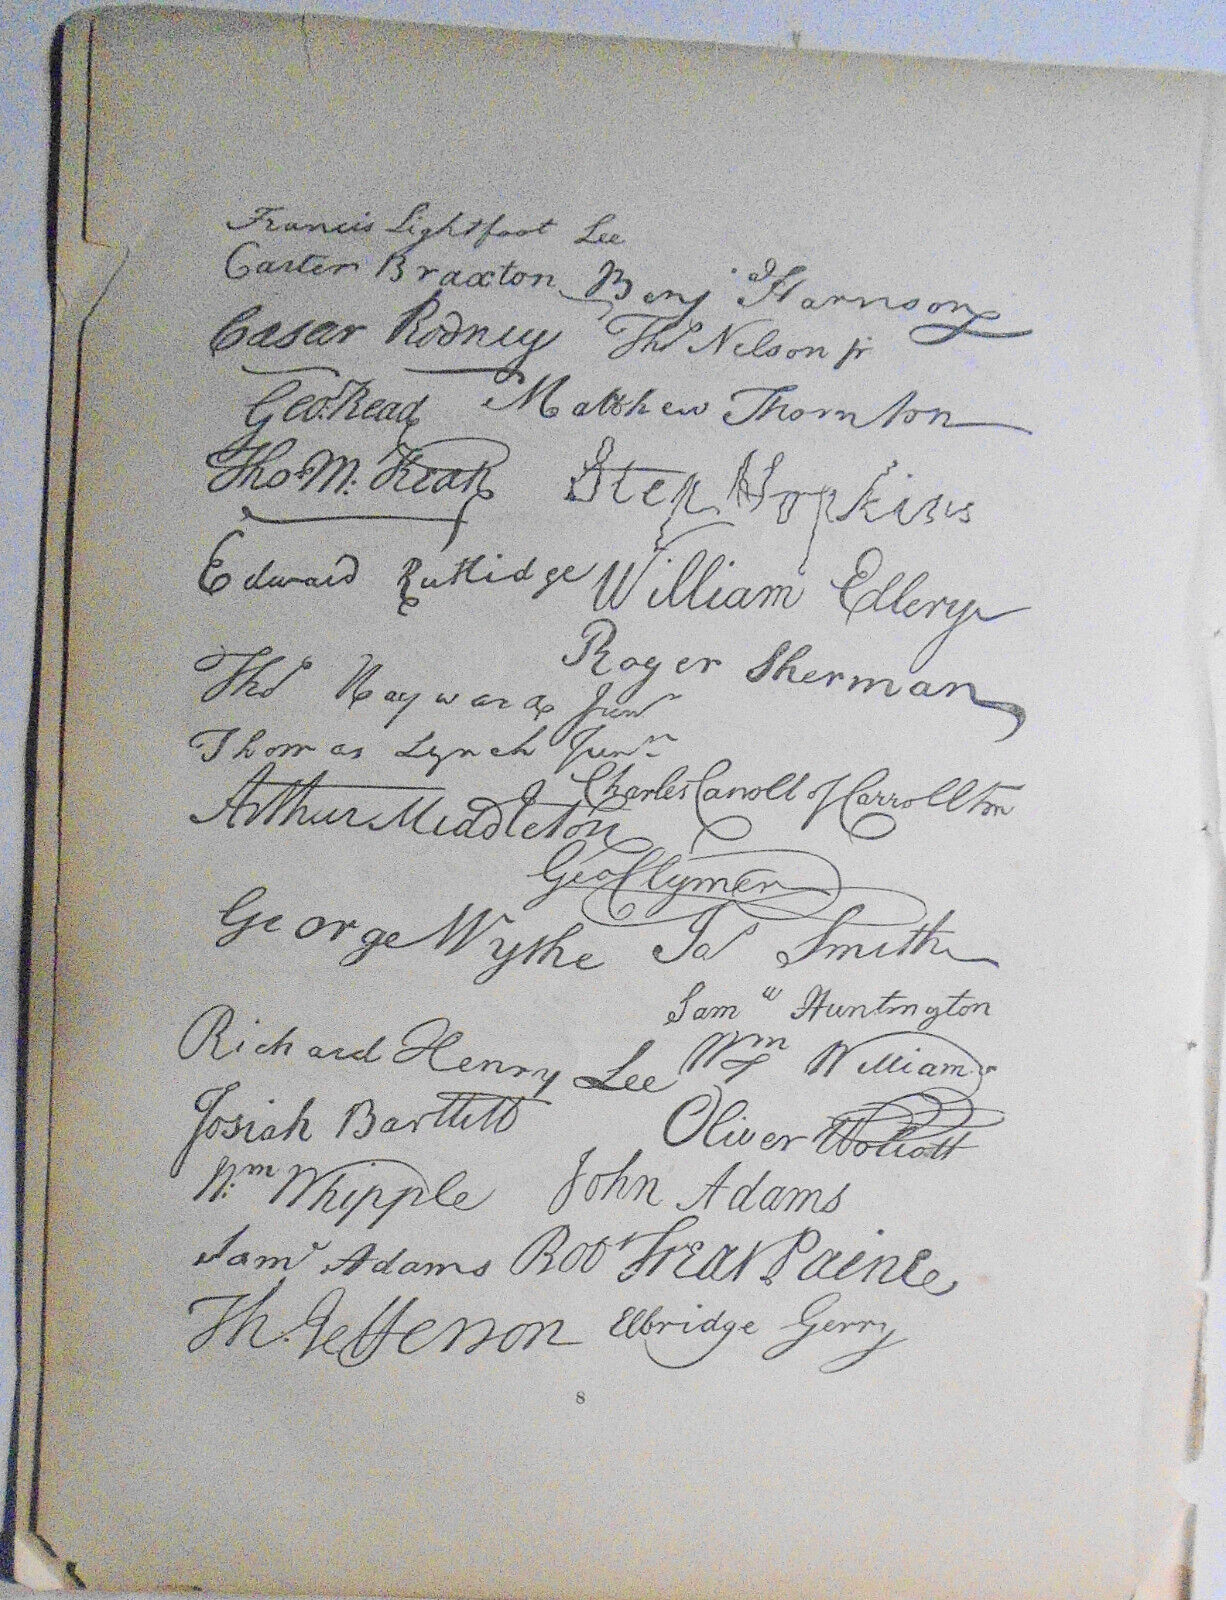 Francis Lightfoot Lee
Carter Braxton Benj Harrison
Caesar Rodney Thos Nelson jr
Geo. Read Matthew Thornton
Tho M. Kean Step Hopkins
Edward Rutlidge William Ellery
Roger Sherman
Thos Hayward Junr
Thomas Lynch Junr
Charles Carroll of Carrollton
Arthur Middleton
Geo Clymer
George Wythe Jas Smith
Saml Huntington
Richard Henry Lee Wm Williams
Josiah Bartlett Oliver Wolcott
Wm Whipple John Adams
Saml Adams Robt Treat Paine
Th. Jefferson Elbridge Gerry
8